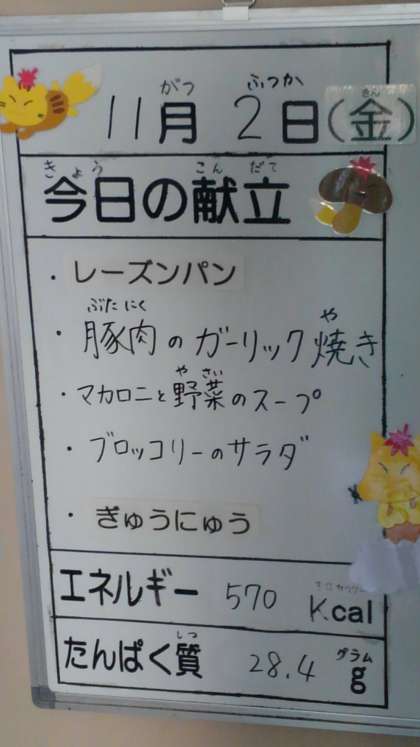 11月 2日(金)
がつ ふつか きん
今日の献立
きょう こんだて
・レーズンパン
・豚肉のガーリック焼き
ぶたにく や
・マカロニと野菜のスープ
やさい
・ブロッコリーのサラダ
・ぎゅうにゅう
エネルギー 570 Kcal
キロカロリー
たんぱく質 28.4 g
しつ グラム